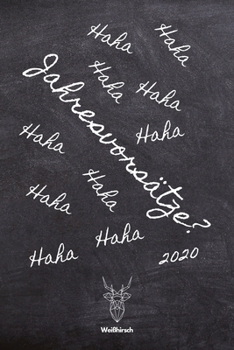 Haha
Haha
Haha
Haha
Jahresvorsätze?
Haha
Haha
Haha
Haha
Haha
Haha
2020
Weißhirsch